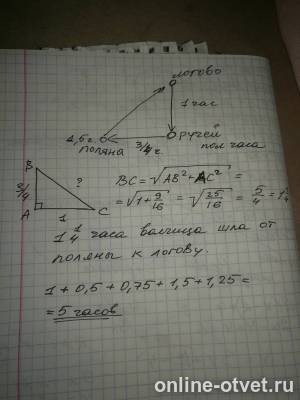 логово
1 час
1,5 г.
ручей
поляна
3/4 г.
пол часа
B
?
3/4
A
1
C
BC = √AB² + AC² =
= √1 + 9/16 = √25/16 = 5/4 = 1 1/4
1 1/4 часа волчица шла от
поляны к логову.
1 + 0,5 + 0,75 + 1,5 + 1,25 =
= 5 часов
online-otvet.ru